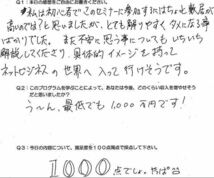 Q1:本日の感想をご自由にお書きください。
私は初心者でこのセミナーに参加するにはちょっと敷居が
高いのでは?と思いましたが、とても解りやすくタメになる事
ばかりでした。また不安に思う事についてもいちいち
解説してくださり、具体的イメージを持って
ネットビジネスの世界へ入って行けそうです。
Q2:このプログラムを学ぶことによって、あなたは今後、どのくらい収入を増やせそう
だと思いましたか?
う〜ん、最低でも1,000万円です!
Q3:今日の内容について、満足度を100点満点で採点して下さい。
1000
点でしょ。やっぱ